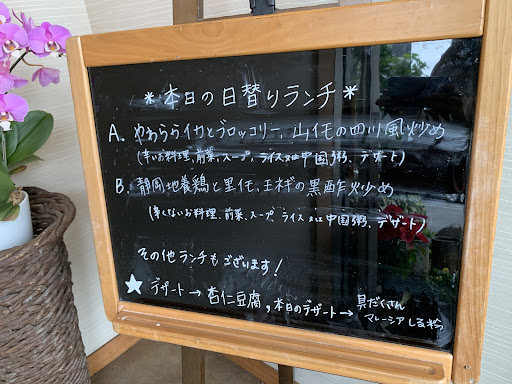 *本日の日替りランチ*
A. やわらイカとブロッコリー、山イモの四川風炒め
(辛いお料理、前菜、スープ、ライス又は中国粥、デザート)
B. 静岡地養鶏と里イモ、玉ネギの黒酢炒め
(辛くないお料理、前菜、スープ、ライス又は中国粥、デザート)
その他ランチもございます!
★ デザート→ 杏仁豆腐, 本日のデザート→ 具だくさん
マレーシア